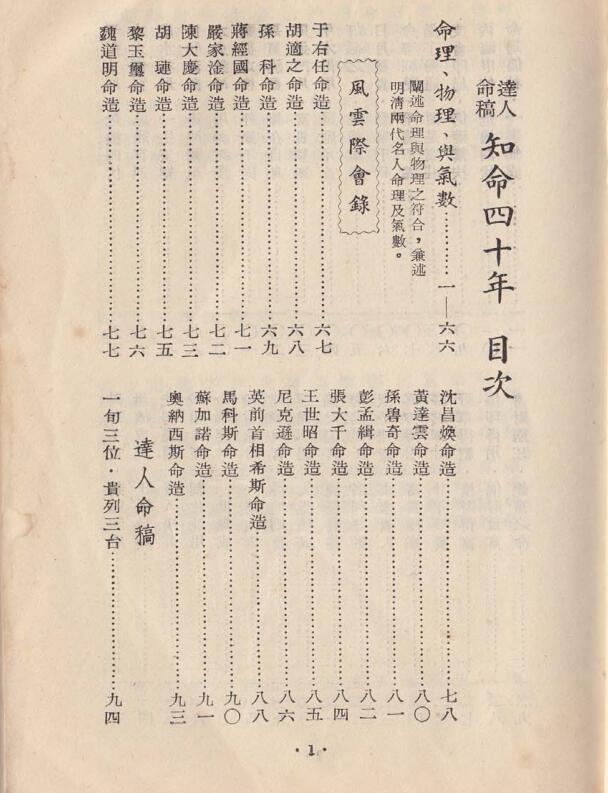 達人
命稿
知命四十年 目次
命理、物理、與氣數…………一—六六
闡述命理與物理之符合，兼述
明清兩代名人命理及氣數。
風雲際會錄
于右任命造…………六七
胡適之命造…………六八
孫 科命造…………六九
蔣經國命造…………七一
嚴家淦命造…………七二
陳大慶命造…………七三
胡 璉命造…………七五
黎玉璽命造…………七六
魏道明命造…………七七
沈昌煥命造…………七八
黃達雲命造…………八〇
孫碧奇命造…………八一
彭孟緝命造…………八二
張大千命造…………八四
王世昭命造…………八五
尼克遜命造…………八六
英前首相希斯命造…………八八
馬科斯命造…………九〇
蘇加諾命造…………九一
奧納西斯命造…………九三
達人命稿
一旬三位．貴列三台…………九四
·1·